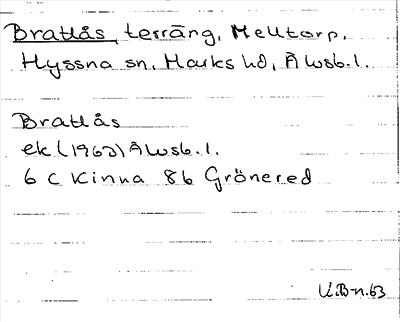 Brattås, terräng, Melltorp,
Hyssna sn, Marks hd, Älvsb. l.
Brattås
ek (1963) Älvsb. l.
6 C Kinna 8b Grönered